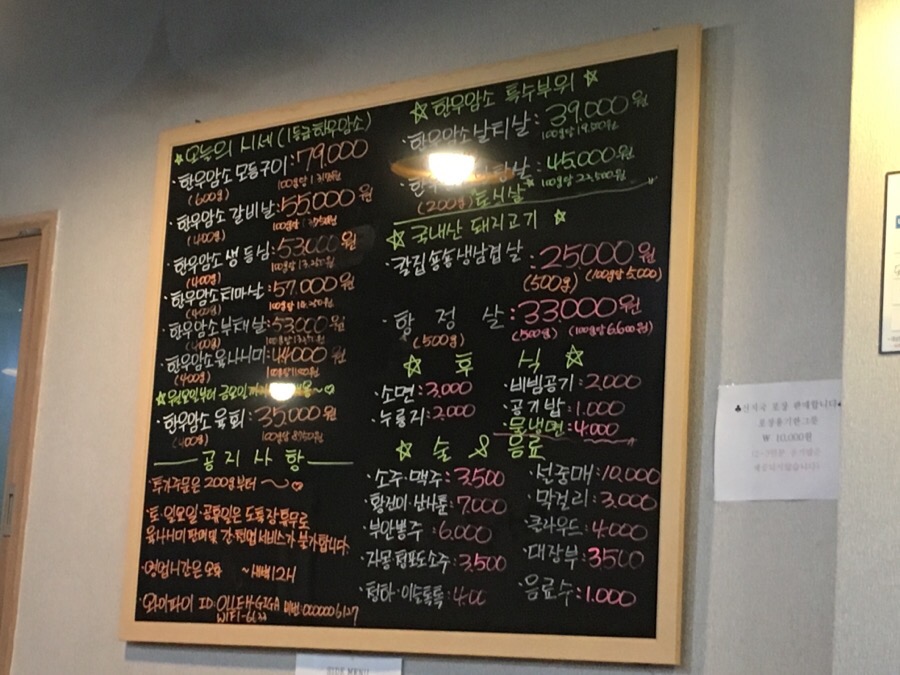 ☆오늘의 시세 (1등급 한우암소)
·한우암소 모듬구이:79,000
(600g)
·한우암소 갈비살:55,000원
(400g)
·한우암소 생등심:53,000원
(400g) 100g당 13,250원
·한우암소치마살:57,000원
(400g) 100g당 14,250원
·한우암소부채살:53,000원
(400g)
·한우암소육사시미:44000원
(400g) 100g당 11,000원
☆월요일부터 금요일까지
·한우암소 육회:35,000원
(400g) 100g당 8750원
공지사항
·추가주문은 200g부터
·토·일요일·공휴일은 도축장휴무로
육사시미 판매 및 간·천엽 서비스가 불가합니다.
·영업시간은 오후 ~새벽12시
·와이파이 ID OLLEH-GIGA 비번:0000006127
WIFI-
☆한우암소 특수부위☆
·한우암소살치살:39,000원
100g당 19,500원
45,000원
(200g) 토시살 100g당 22,500원
☆국내산 돼지고기☆
·칼집송송냉삼겹살:25000원
(500g) (100g당 5,000)
·항정살:33000원
(500g) (500g) (100g당 6,600원)
☆후식☆
·소면:3,000 ·비빔공기:2,000
·누룽지:2,000 ·공기밥:1,000
·물냉면:4,000
☆술&음료
·소주·맥주:3,500 ·설중매:10,000
·황진이·산사춘:7,000 ·막걸리:3,000
·부안뽕주:6,000 ·클라우드:4,000
·자몽·청포도소주:3,500 ·대장부:3500
·청하·이슬톡톡:4,00 ·음료수:1,000
♣전자국 포장 판매합니다♣
포장용기전그릇
₩ 10,000원
SIDE MENU